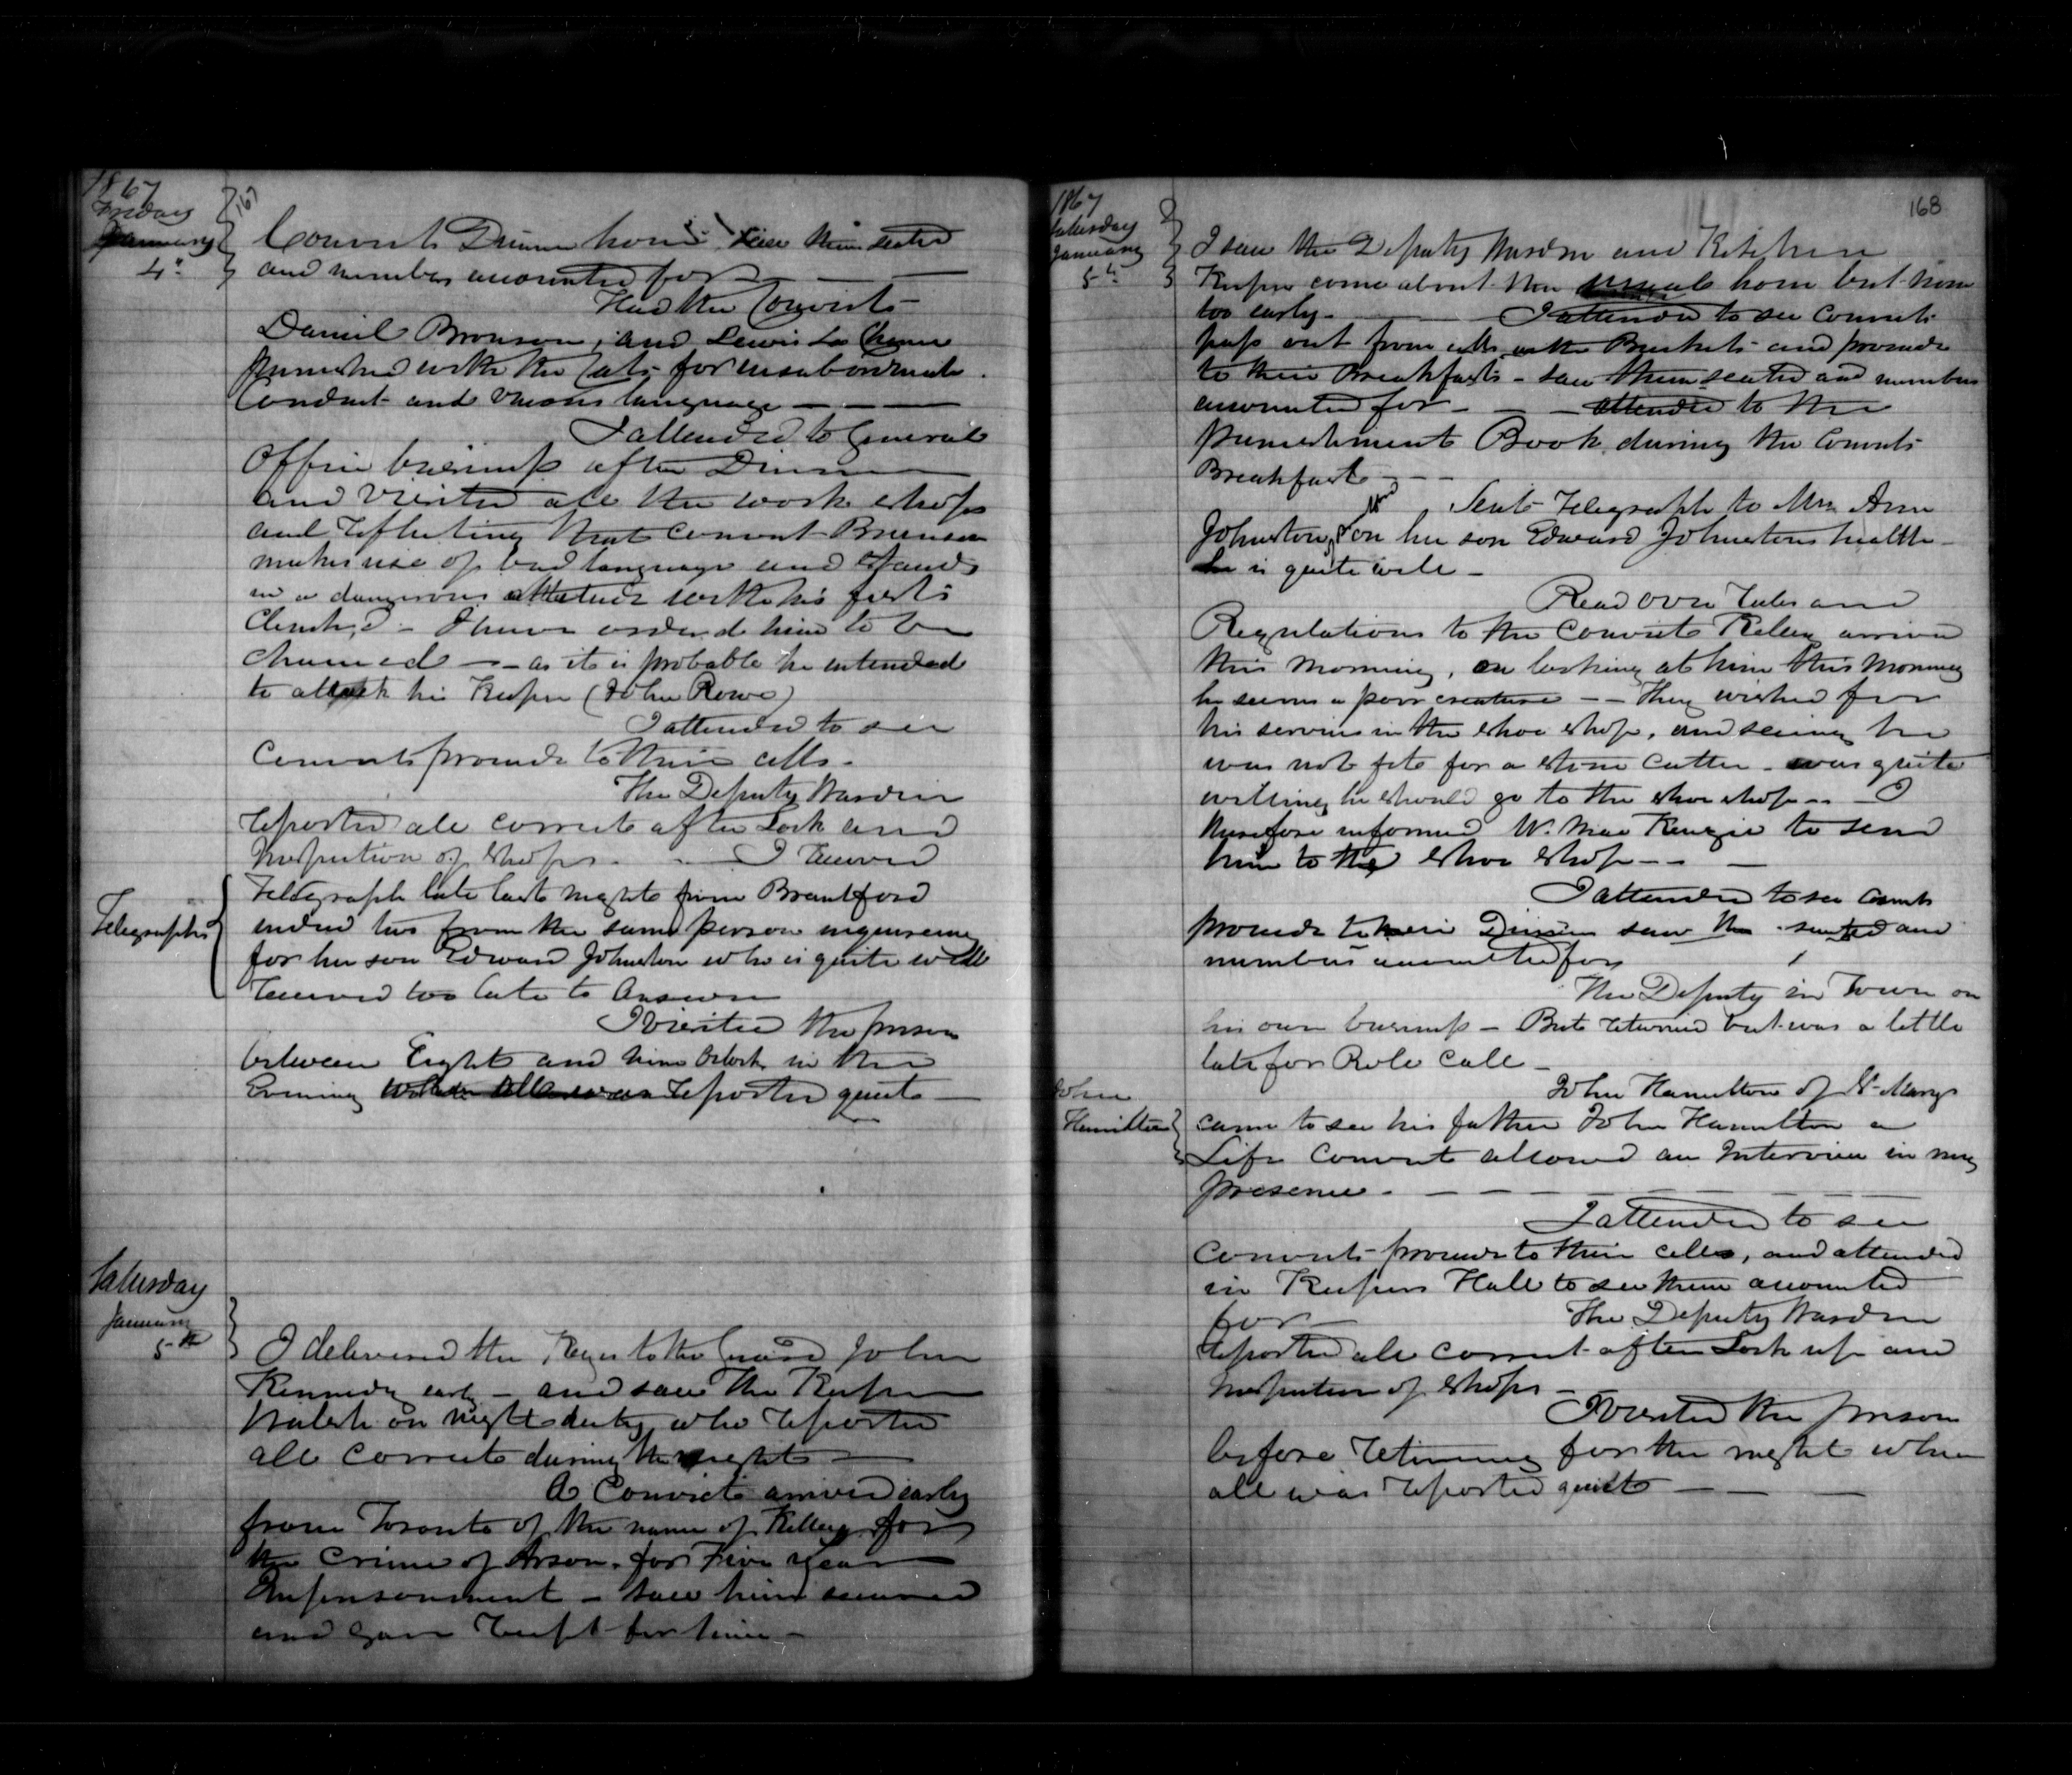 1867
Friday
January
4th
167
Convicts Dinner hour saw them seated
and numbers accounted for
Had the Convicts
Daniel Bronson, and Lewis La
punished with the Cats for insubordinate
Conduct and language
I attended to General
Office business after Dinner
and visited all the work shops
and reflecting that convict Brunson
makes use of bad language and stands
in a dangerous attitude with his fists
Clenched - I have ordered him to be
chained - as it is probable he intended
to attack his Keeper (John Rowe)
I attended to see
Convicts proceed to their cells.
The Deputy Warden
reported all correct after Lock and
Inspection of shops. I received
Telegraphs
Telegraph late last night from Brantford
indeed two from the same person
for her son Edward Johnston who is quite well
received too late to Answer
I visited the prison
between Eight and nine Oclock in the
Evening when all was reported quiet
Saturday
January
5th
I delivered the Keys to the Guard John
Kennedy early - and saw the Keeper
Walsh on night duty who reported
all correct during the night
A Convict arrived early
from Toronto of the name of Kelley for
the Crime of Arson, for Five years
Imprisonment - saw him secured
and gave receipt for him -
1867
Saturday
January
5th
168
I saw the Deputy Warden and Kitchen
Keeper come about the usual hour but none
too early - I attended to see Convicts
pass out from cells with Buckets and proceed
to their Breakfasts - saw them seated and numbers
accounted for - attended to the
punishment Book during the Convicts
Breakfast
Sent Telegraph to Mrs Ann
Johnston, on her son Edward Johnstons health
he is quite well -
Read over rules and
Regulations to the Convict Kelley arrived
this Morning, on looking at him this Morning
he seems a poor creature - They wished for
his services in the shoe shop, and seeing he
was not fit for a stone Cutter - was quite
willing he should go to the shoe shop - I
therefore informed W. MacKenzie to send
him to the shoe shop -
I attended to see Convicts
proceed to their Dinner saw them seated and
numbers accounted for
The Deputy in Town on
his own business - But returned but was a little
late for Role Call -
John
Hamilton
John Hamilton of St. Marys
came to see his father John Hamilton a
Life Convict allowed an Interview in my
presence -
I attended to see
Convicts proceed to their cells, and attended
in Keepers Hall to see them accounted
for - The Deputy Warden
reported all correct after Lock up and
Inspection of shops -
I visited the prison
before retiring for the night when
all was reported quiet